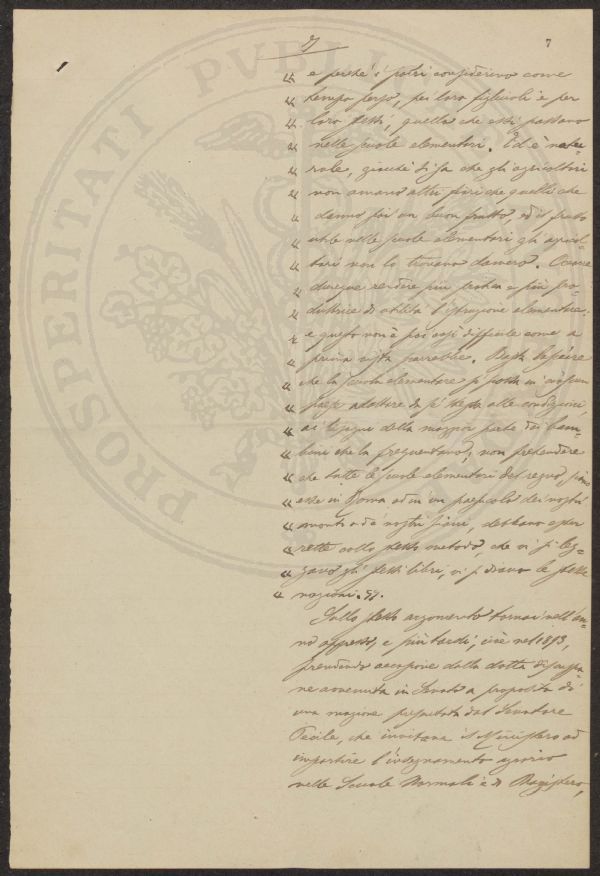 7
« e perchè i padri considerino come
« tempo perso, pei loro figliuoli e per
« loro stessi, quello che essi passano
« nelle scuole elementari. Ed è natu-
« rale, giacchè si sa che gli agricoltori
« non amano altri fiori che quelli che
« danno poi un buon frutto, ed il frutto
« utile nelle scuole elementari gli agricol-
« tori non lo trovano davvero. Occorre
« dunque rendere più pratica e più pro-
« duttrice di utilità l'istruzione elementare;
« e questo non è poi così difficile come a
« prima vista parrebbe. Basta lasciare
« che la scuola elementare si possa in ciascun
« paese adattare da sè stessa alle condizioni,
« ai bisogni della maggior parte dei bam-
« bini che la frequentano; non pretendere
« che tutte le scuole elementari del regno, siano
« esse in Roma od in un paesicolo dei nostri
« monti o de' nostri piani, debbano esser
« rette collo stesso metodo, che vi si leg-
« gano gli stessi libri, vi si diano le stesse
« nozioni. »
Sullo stesso argomento tornai nell'an-
no appresso, e più tardi, cioè nel 1893,
prendendo occasione dalla dotta discussio-
ne avvenuta in Senato a proposito di
una mozione presentata dal Senatore
Pecile, che invitava il Ministero ad
impartire l'insegnamento agrario
nelle Scuole Normali e di Magistero,
PROSPERITATI PVBLI